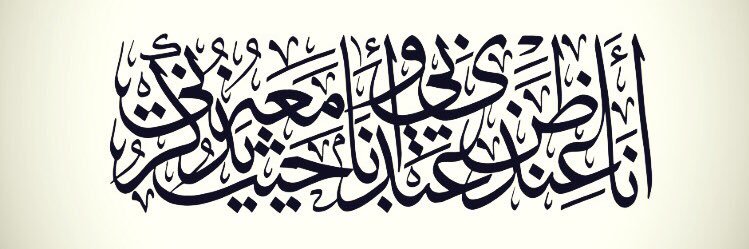 أَنَا عِندَ ظَنِّ عَبْدِي بِي وَأَنَا مَعَهُ حَيْثُ يَذْكُرُنِي